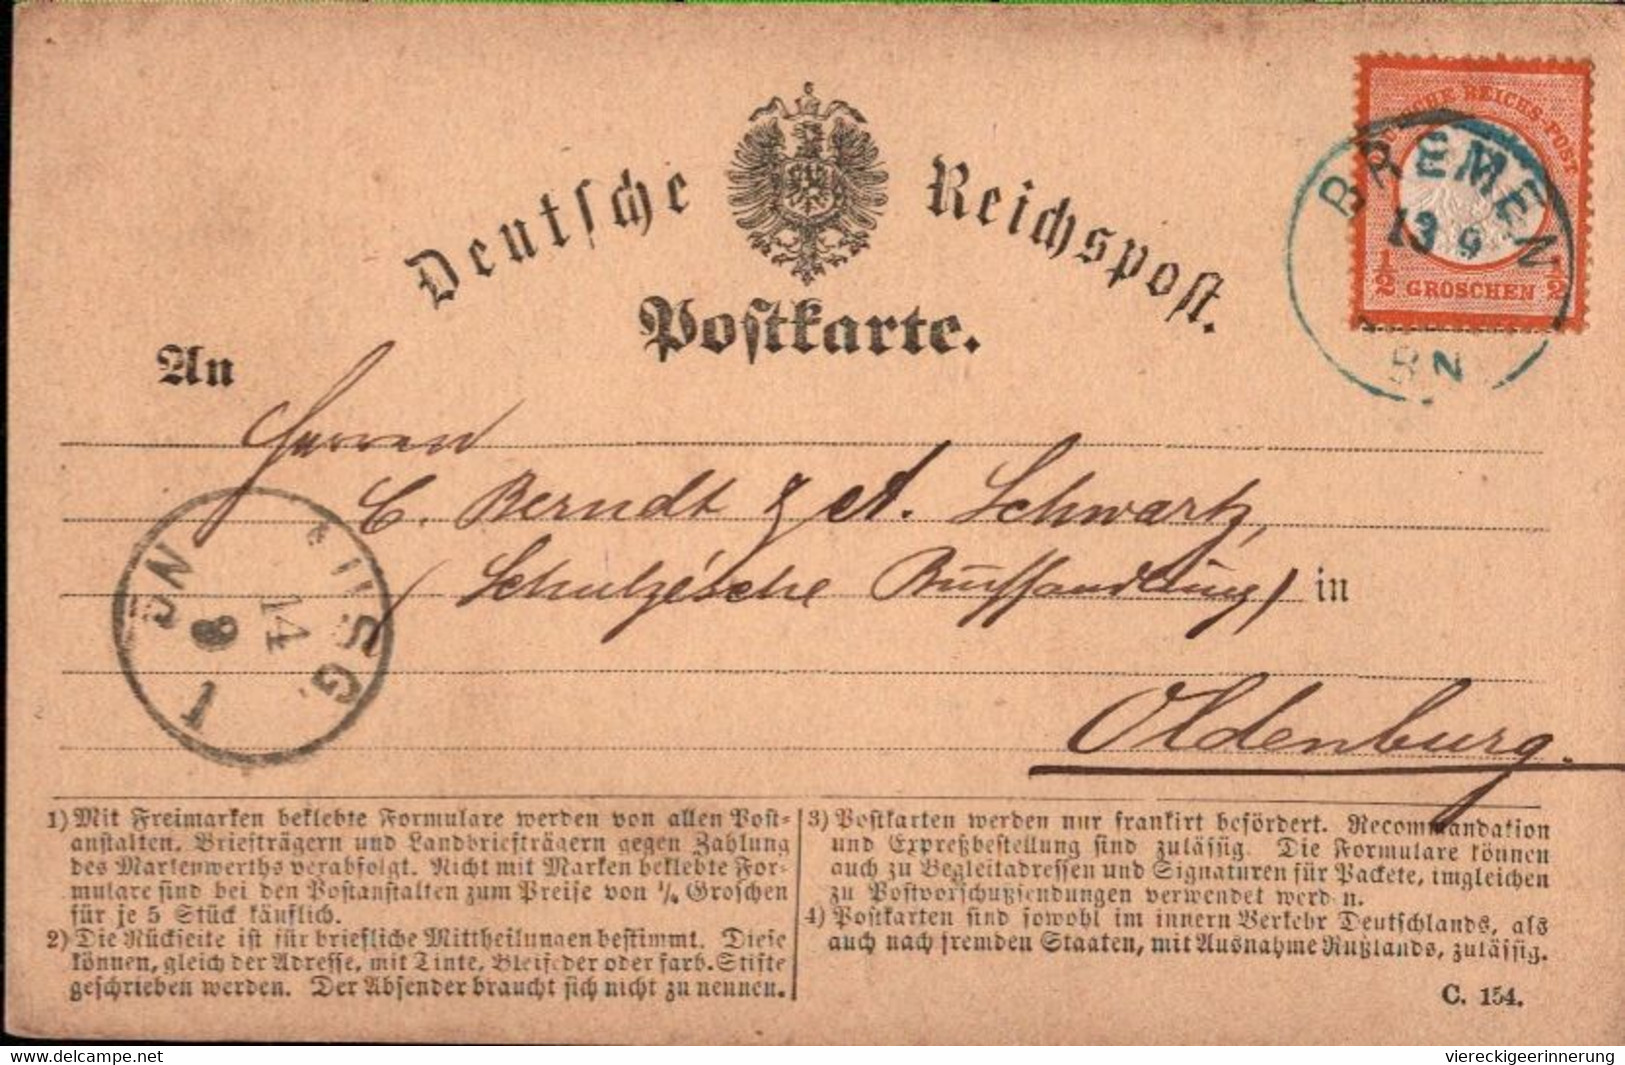 Deutsche Reichspost.
Postkarte.
DEUTSCHE REICHS-POST
½ GROSCHEN ½
BREMEN
13 9
BN
An
Herren
C. Berndt & A. Schwartz,
(Schulze'sche Buchhandlung) in
Oldenburg.
14
9
1
1) Mit Freimarken beklebte Formulare werden von allen Post-
anstalten, Briefträgern und Landbriefträgern gegen Zahlung
des Markenwerths verabfolgt. Nicht mit Marken beklebte For-
mulare sind bei den Postanstalten zum Preise von ¼ Groschen
für je 5 Stück käuflich.
2) Die Rückseite ist für briefliche Mittheilungen bestimmt. Diese
können, gleich der Adresse, mit Tinte, Bleifeder oder farb. Stifte
geschrieben werden. Der Absender braucht sich nicht zu nennen.
3) Postkarten werden nur frankirt befördert. Recommandation
und Expreßbestellung sind zulässig. Die Formulare können
auch zu Begleitadressen und Signaturen für Packete, imgleichen
zu Postvorschußsendungen verwendet werd n.
4) Postkarten sind sowohl im innern Verkehr Deutschlands, als
auch nach fremden Staaten, mit Ausnahme Rußlands, zulässig.
C. 154.
delcampe.net
viereckigeerinnerung